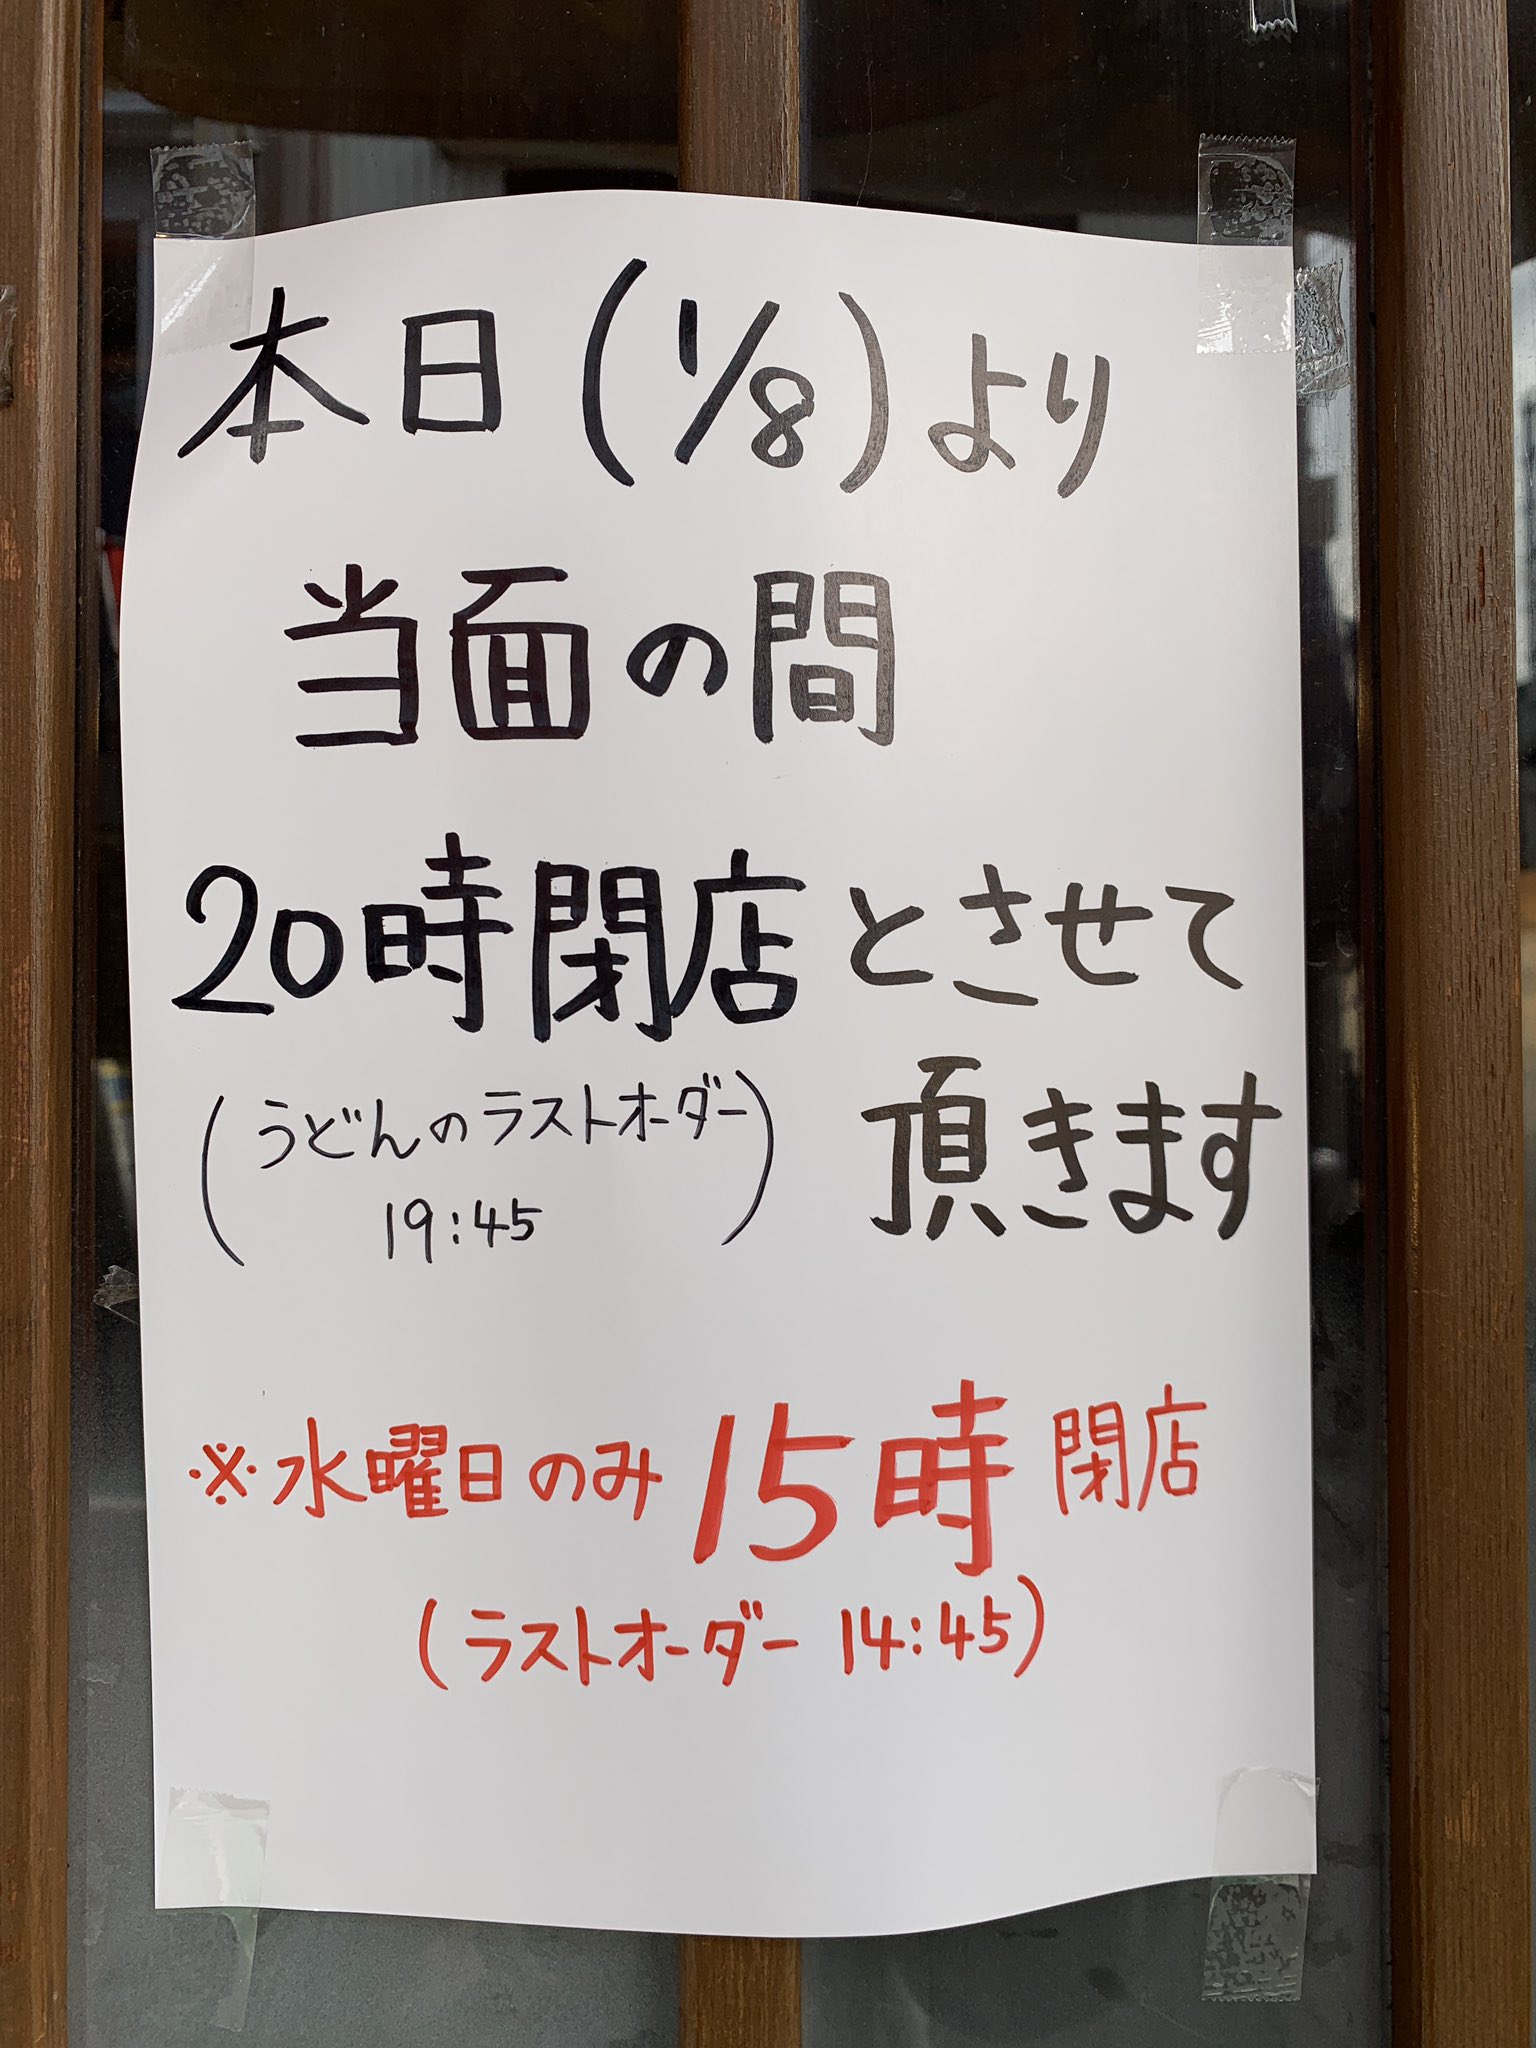 本日(1/8)より
当面の間
20時閉店とさせて
頂きます
(うどんのラストオーダー
19:45)
※水曜日のみ15時閉店
(ラストオーダー 14:45)